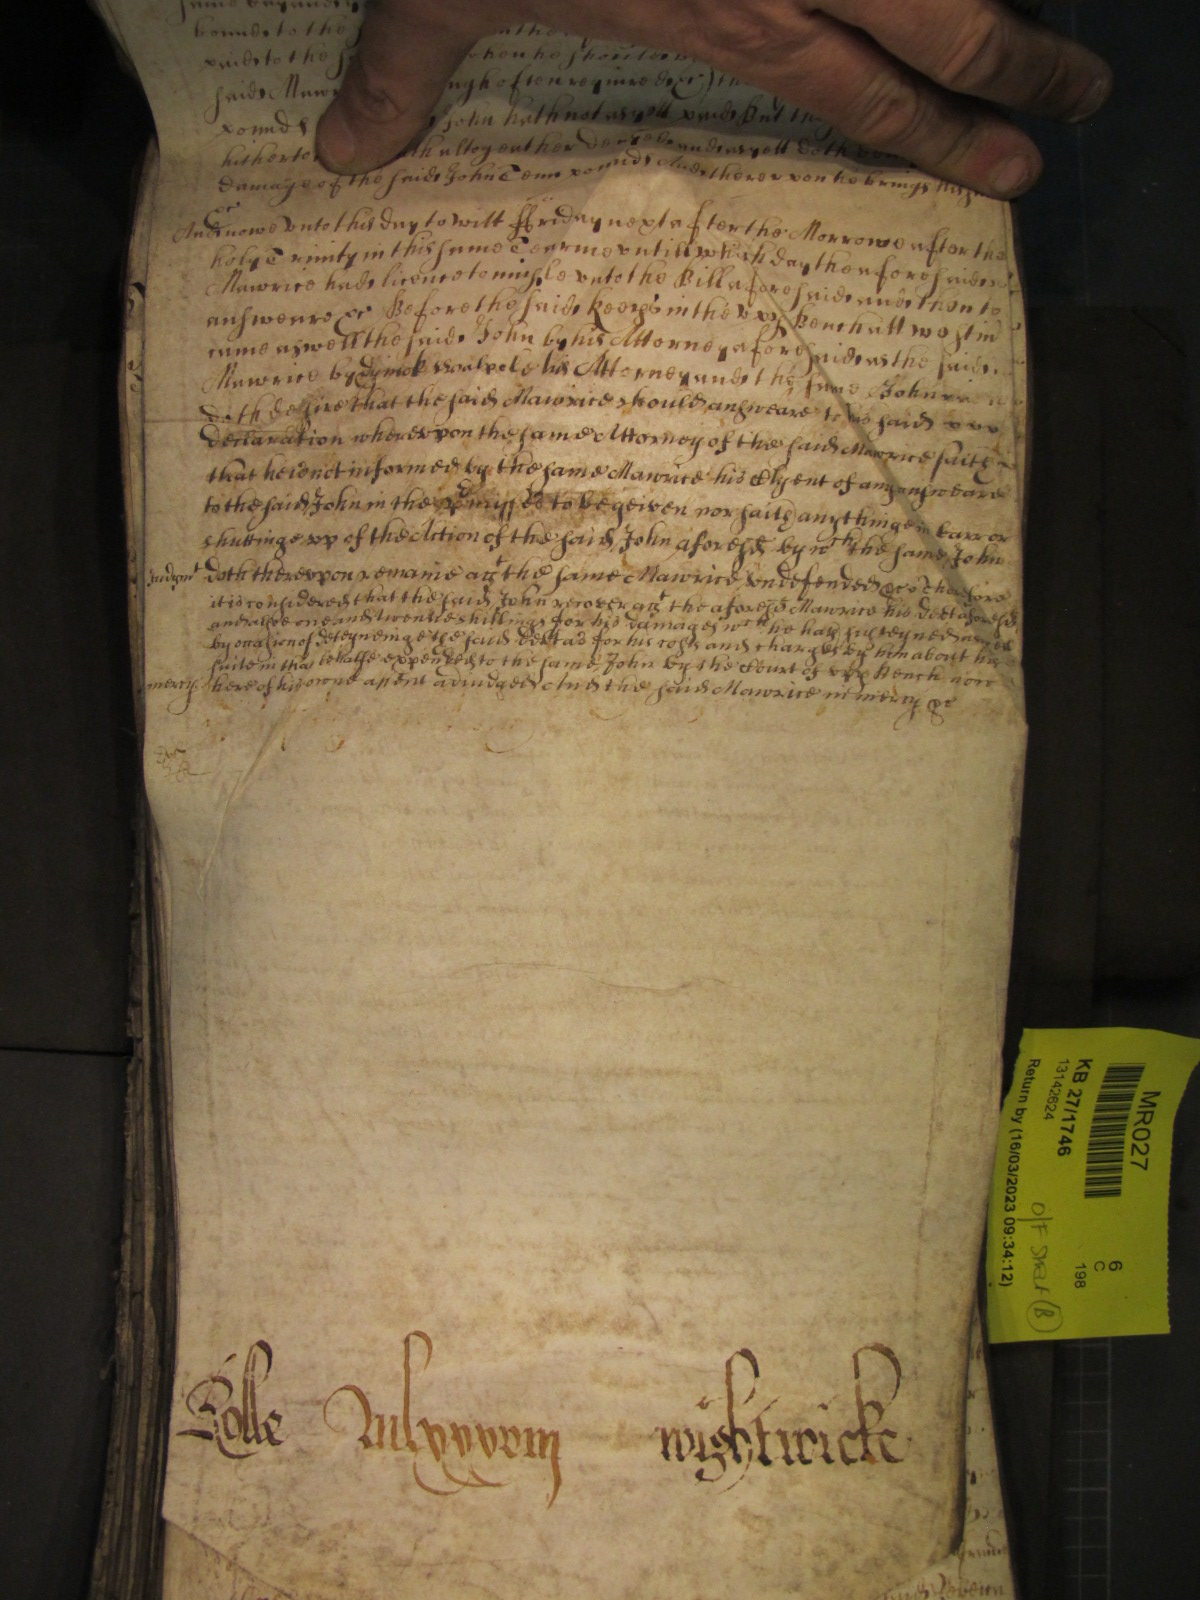 bound to the
paid to the when he should
said Mawr ough often required &c) the
pounds John hath not as yett paid But the
hitherto altogeather denyed and as yett doth
damage of the said John Tenn pounds And thereupon he brings his
&c
And nowe unto this day to witt ffriday next after the Morrowe after the
holy Trinity in this same Tearme untill which day the aforesaid
Mawrice had licence to imparle unto the Bill aforesaid and then to
answeare &c Before the said keeprs in the vpp Bench att westmr
came aswell the said John by his Attorney aforesaid as the said
Mawrice by Dymok Walpole his Attorney and the same John
doth desire that the said Mawrice should answeare to his said
declaration whereupon the same Attorney of the said Mawrice saith
that he is not informed by the same Mawrice his Clyent of any answeare
to the said John in the prmisses to be geiven nor saith anythinge in barr or
shuttinge vp of the Action of the said John aforesd by wch the same John
Judgmt doth thereupon remaine agt the same Mawrice vndefended &c Therefore
it is considered that the said John recover agt the aforesd Mawrice his debt aforesd
and alsoe one and twentie shillings for his damages wch he hath susteyned as well
by occasion of deteyneinge the said debt as for his costs and charges by him about his
suite in that behalfe expended to the same John by the Court of vpp Bench now
mercy here of his owne assent adiudged And the said Mawrice in mercy &c
Rolle Mlxxxxviij wightwicke
MR027
KB 27/1746
13142624
Return by (16/03/2023 09:34:12)
6
C
198
O/F Shelf (B)